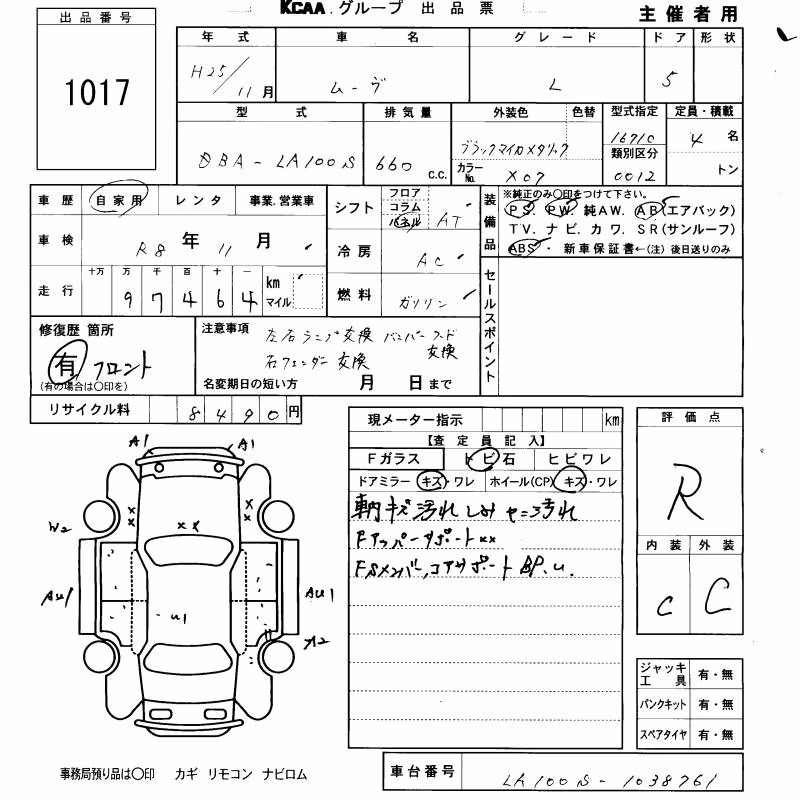 KCAA.グループ 出品票
主催者用
出品番号
1017
年式 車名 グレード ドア 形状
H25/11月 ムーヴ L 5
型式 排気量 外装色 色替 型式指定 定員・積載
DBA-LA100S 660 c.c. ブラックマイカメタリック 16710 4名
カラーNo. X07 類別区分 0012 トン
車歴 自家用 レンタ 事業.営業車
シフト フロア コラム パネル AT
装備品 ※純正のみ〇印をつけて下さい。
PS. PW. 純AW. AB(エアバック)
TV. ナビ. カワ. SR(サンルーフ)
ABS・ 新車保証書←(注)後日送りのみ
車検 R8年11月
冷房 AC
走行 十万 万 千 百 十 一 km マイル
97464
燃料 ガソリン
セールスポイント
修復歴 箇所
有 フロント
(有の場合は〇印を)
注意事項 左右ランプ交換 バンパーフード交換
右フェンダー交換
名変期日の短い方 月 日まで
リサイクル料 8490円
現メーター指示 km
【査定員記入】
Fガラス トビ石 ヒビワレ
ドアミラー キズ・ワレ ホイール(CP) キズ・ワレ
車内キズ汚れ しみ ヤニ汚れ
Fアッパーサポートxx
FSメンバー,コアサポートBP.u.
評価点
R
内装 外装
C C
A1 A1
W2
x x
x x
x x
AU1 AU1
U1
A2
ジャッキ工具 有・無
パンクキット 有・無
スペアタイヤ 有・無
事務局預り品は〇印 カギ リモコン ナビロム
車台番号 LA100S-1038761